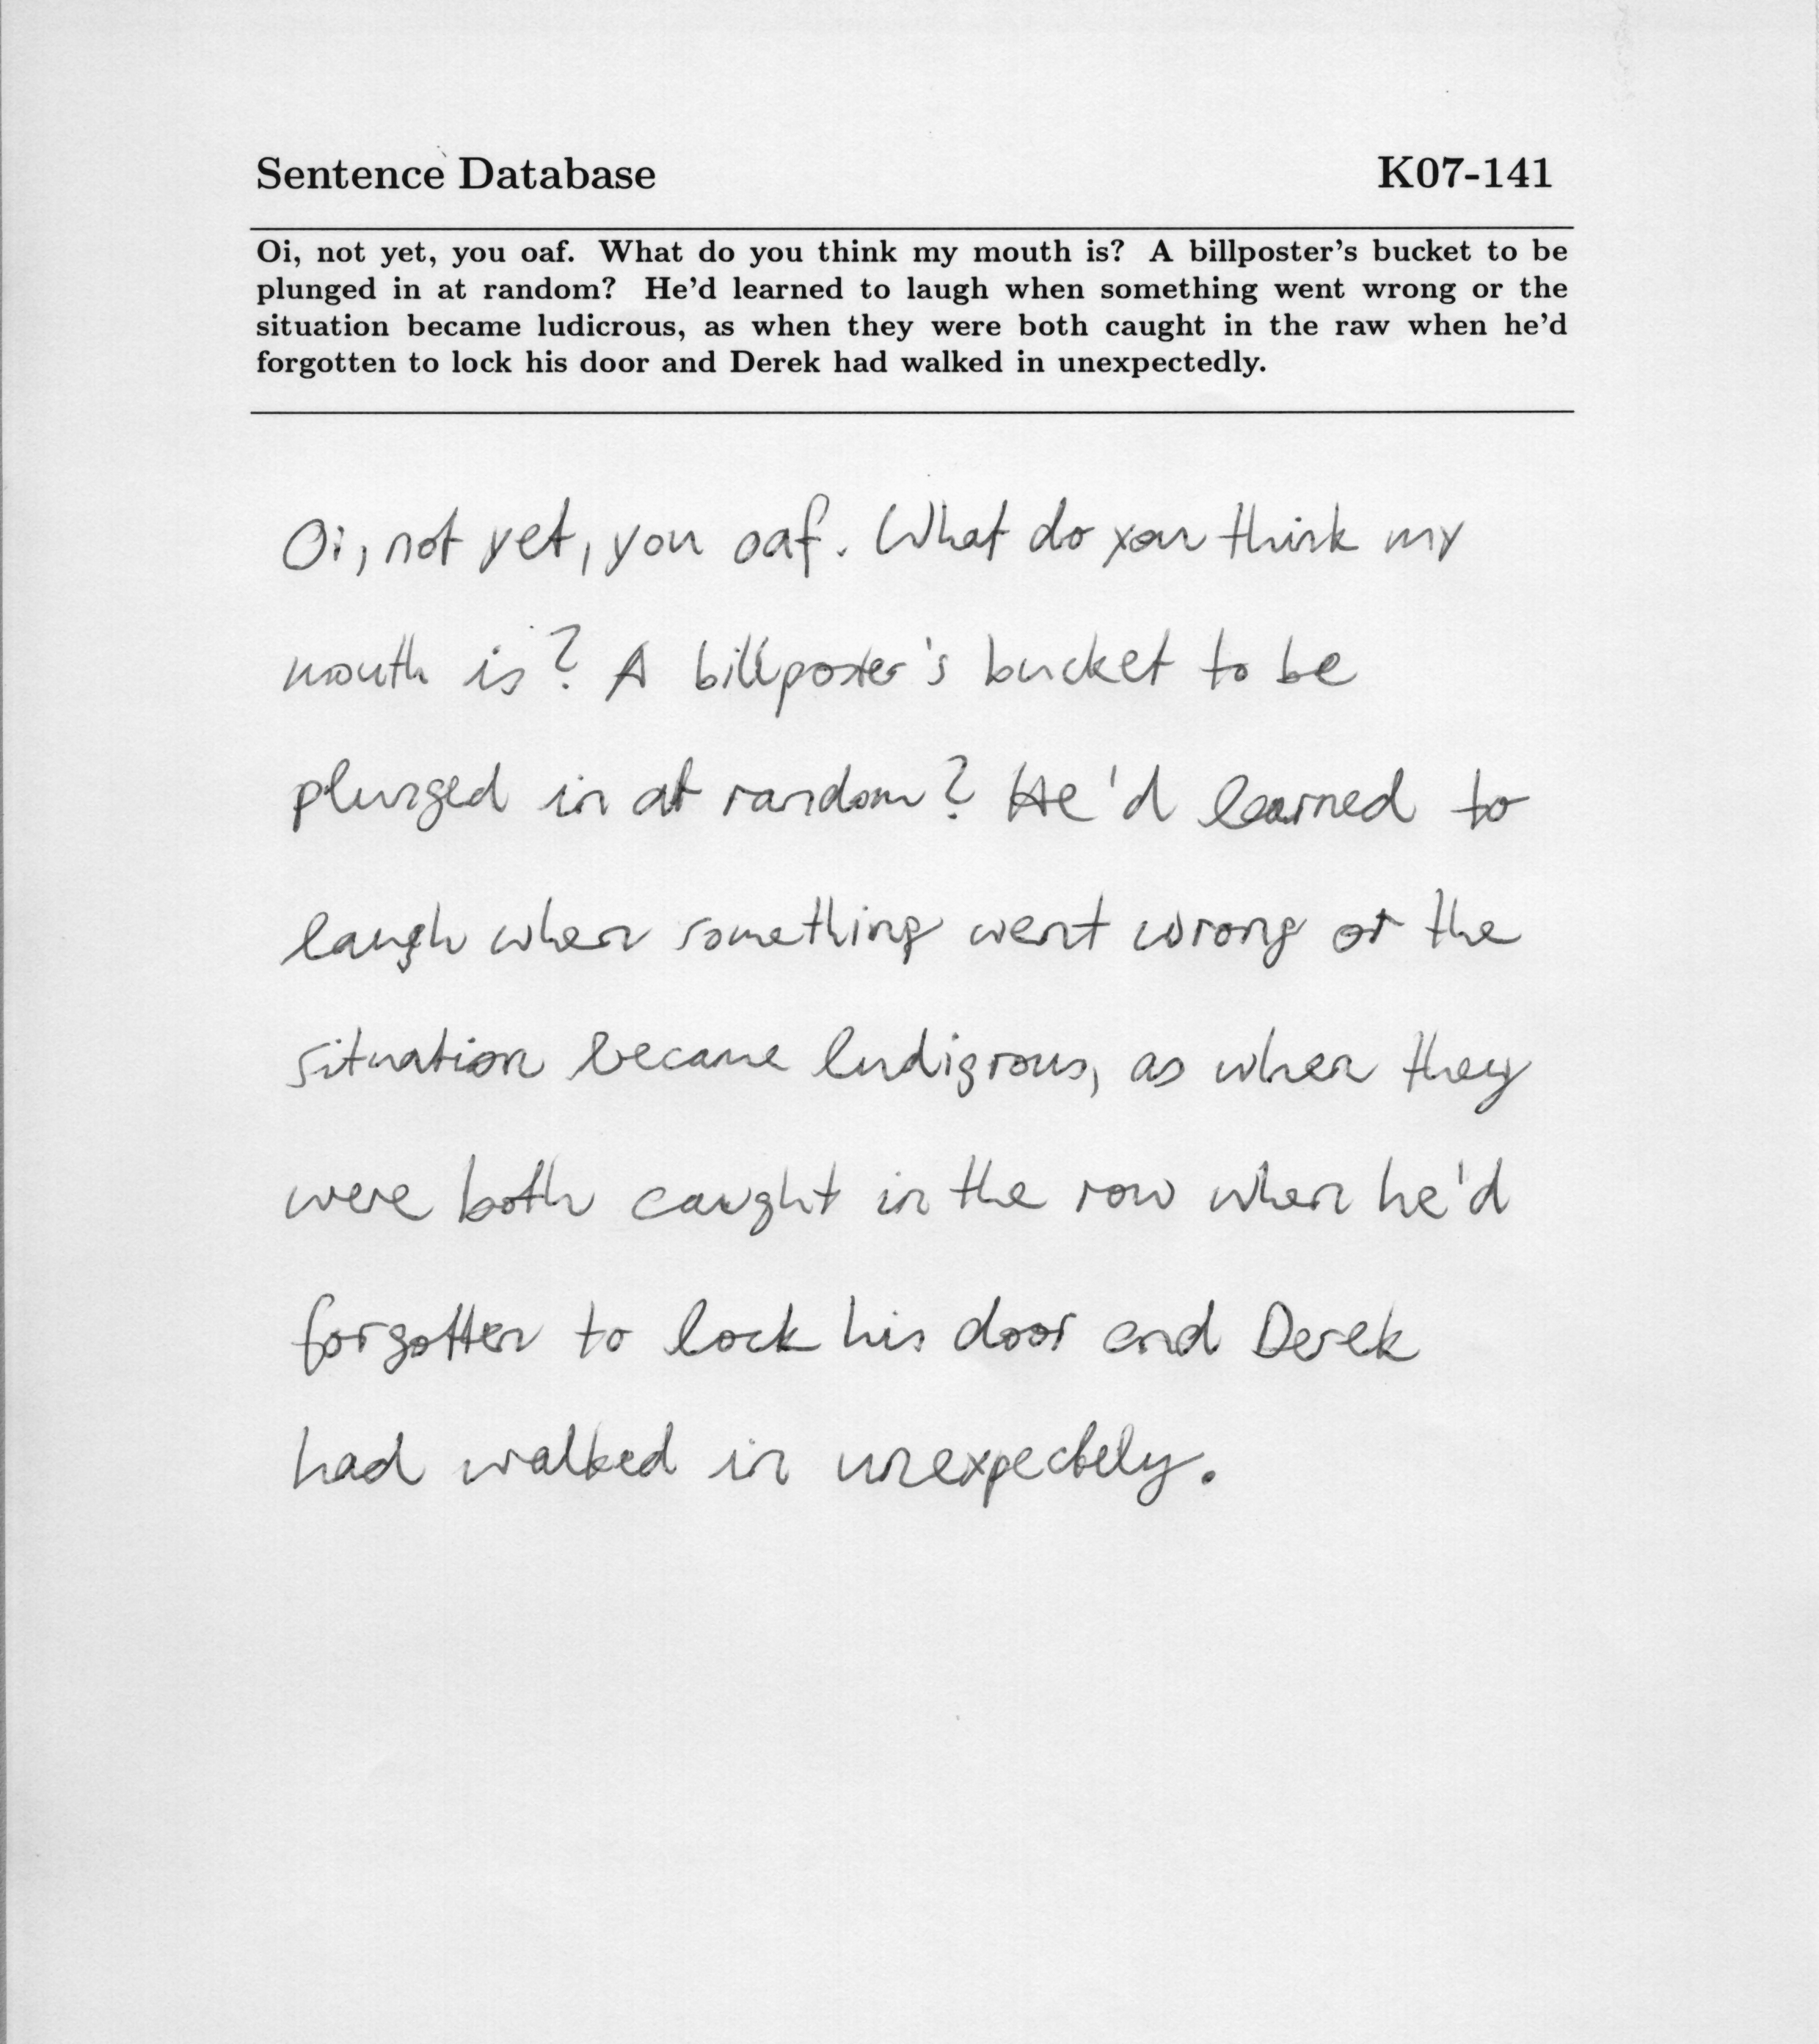 Sentence Database K07-141
Oi, not yet, you oaf. What do you think my mouth is? A billposter's bucket to be
plunged in at random? He'd learned to laugh when something went wrong or the
situation became ludicrous, as when they were both caught in the raw when he'd
forgotten to lock his door and Derek had walked in unexpectedly.
Oi, not yet, you oaf. What do you think my
mouth is? A billposter's bucket to be
plunged in at random? He'd learned to
laugh when something went wrong or the
situation became ludigrous, as when they
were both caught in the row when he'd
forgotten to lock his door and Derek
had walked in unexpectely.